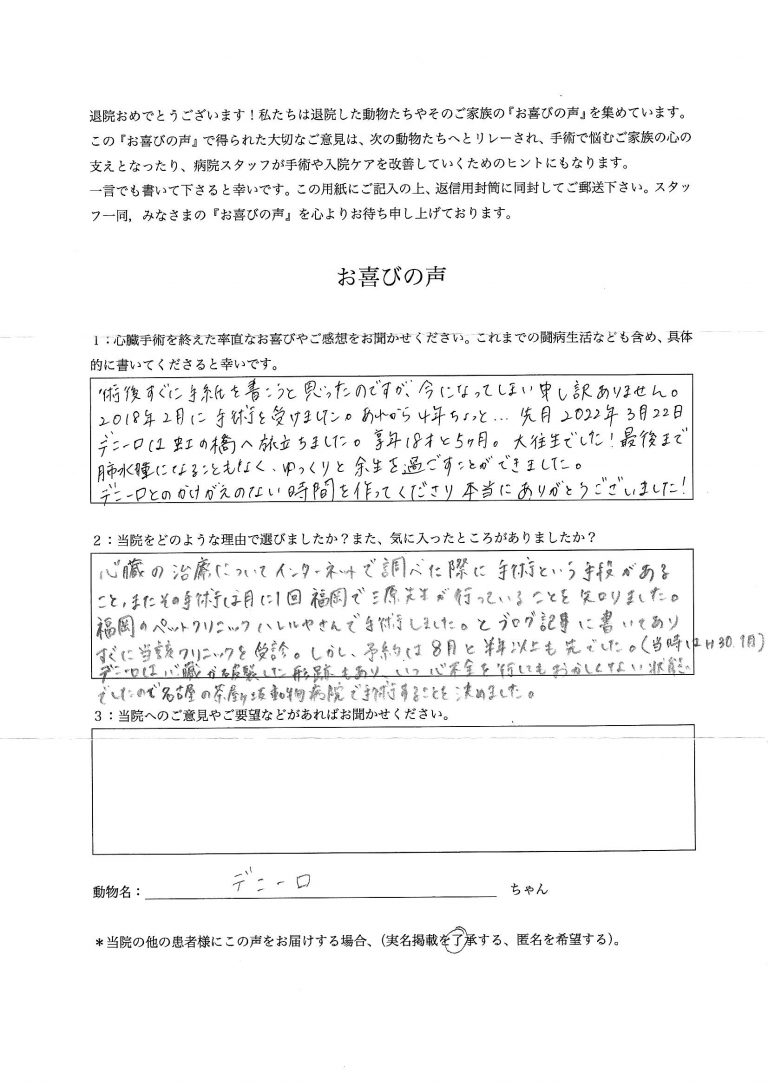 退院おめでとうございます！私たちは退院した動物たちやそのご家族の『お喜びの声』を集めています。
この『お喜びの声』で得られた大切なご意見は、次の動物たちへとリレーされ、手術で悩むご家族の心の
支えとなったり、病院スタッフが手術や入院ケアを改善していくためのヒントにもなります。
一言でも書いて下さると幸いです。この用紙にご記入の上、返信用封筒に同封してご郵送下さい。スタッ
フ一同，みなさまの『お喜びの声』を心よりお待ち申し上げております。
お喜びの声
1：心臓手術を終えた率直なお喜びやご感想をお聞かせください。これまでの闘病生活なども含め、具体
的に書いてくださると幸いです。
術後すぐに手紙を書こうと思ったのですが、今になってしまい申し訳ありません。
2018年2月に手術を受けました。あれから4年ちょっと… 先月2022年3月22日
デニーロは虹の橋へ旅立ちました。享年18才と5ヶ月。大往生でした！最後まで
肺水腫になることもなく、ゆっくりと余生を過ごすことができました。
デニーロとのかけがえのない時間を作ってくださり本当にありがとうございました！
2：当院をどのような理由で選びましたか？また、気に入ったところがありましたか？
心臓の治療についてインターネットで調べた際に手術という手段がある
こと、またその手術は月に1回福岡で三原先生が行っていることを知りました。
福岡のペットクリニックハレルヤさんで手術しました。とブログ記事に書いてあり
すぐに当該クリニックを受診。しかし、予約は8月と半年以上も先でした。(当時はH30.1月)
デニーロは心臓が破裂した形跡もあり、いつ心不全を併しもおかしくない状態
でしたので名古屋の茶屋ヶ坂動物病院で手術することを決めました。
3：当院へのご意見やご要望などがあればお聞かせください。
動物名： デニーロ ちゃん
＊当院の他の患者様にこの声をお届けする場合、(実名掲載を了承する、匿名を希望する)。